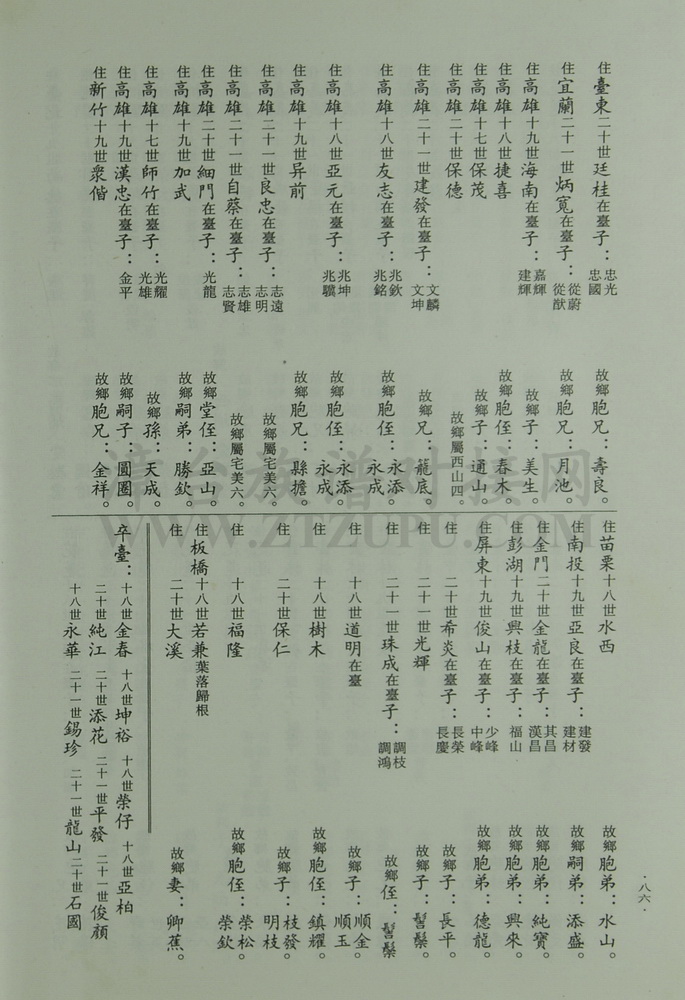 住臺東二十世廷桂在臺子：忠光 忠國 故鄉胞兄：壽良。
住宜蘭二十一世炳寬在臺子：從蔚 從猷 故鄉胞兄：月池。
住高雄十九世海南在臺子：嘉輝 建輝 故鄉子：美生。
住高雄十八世捷喜 故鄉胞侄：春木。
住高雄十七世保茂 故鄉子：通山。
住高雄二十世保德 故鄉屬西山四。
住高雄二十一世建發在臺子：文麟 文坤 故鄉兄：龍底。
住高雄十八世友志在臺子：兆欽 兆銘 故鄉胞侄：永添 永成。
住高雄十八世亞元在臺子：兆坤 兆驥 故鄉胞侄：永添 永成。
住高雄十九世异前 故鄉胞兄：縣擔。
住高雄二十一世良忠在臺子：志遠 志明 故鄉屬宅美六。
住高雄二十一世自蔡在臺子：志雄 志賢 故鄉屬宅美六。
住高雄二十世細門在臺子：光龍 故鄉堂侄：亞山。
住高雄十九世加武 故鄉嗣弟：勝欽。
住高雄十七世師竹在臺子：光耀 光雄 故鄉孫：天成。
住高雄十九世漢忠在臺子：金平 故鄉嗣子：圓圈。
住新竹十九世衆偕 故鄉胞兄：金祥。
住苗栗十八世水西 故鄉胞弟：水山。
住南投十九世亞良在臺子：建發 建材 故鄉嗣弟：添盛。
住金門二十世金龍在臺子：其昌 漢昌 故鄉胞弟：純寶。
住彭湖十九世興枝在臺子：福山 故鄉胞弟：興來。
住屏東十九世俊山在臺子：少峰 中峰 故鄉胞弟：德龍。
住 二十世希炎在臺子：長榮 長慶 故鄉子：長平。
住 二十一世光輝 故鄉子：
住 二十一世珠成在臺子：調枝 調鴻 故鄉侄：
住 十八世道明在臺 故鄉子：順金 順玉。
住 十八世樹木 故鄉胞侄：鎮耀。
住 二十世保仁 故鄉子：枝發 明枝。
住 十八世福隆 故鄉胞侄：榮松 榮欽。
住板橋十八世若兼葉落歸根
住 二十世大溪 故鄉妻：卿蕉。
卒臺：十八世金春 十八世坤裕 十八世榮仔 十八世亞柏
二十世純江 二十世添花 二十一世平發 二十一世俊顏
十八世永華 二十一世錫珍 二十一世龍山 二十世石國
·八六·
WWW.ZTZUPU.COM